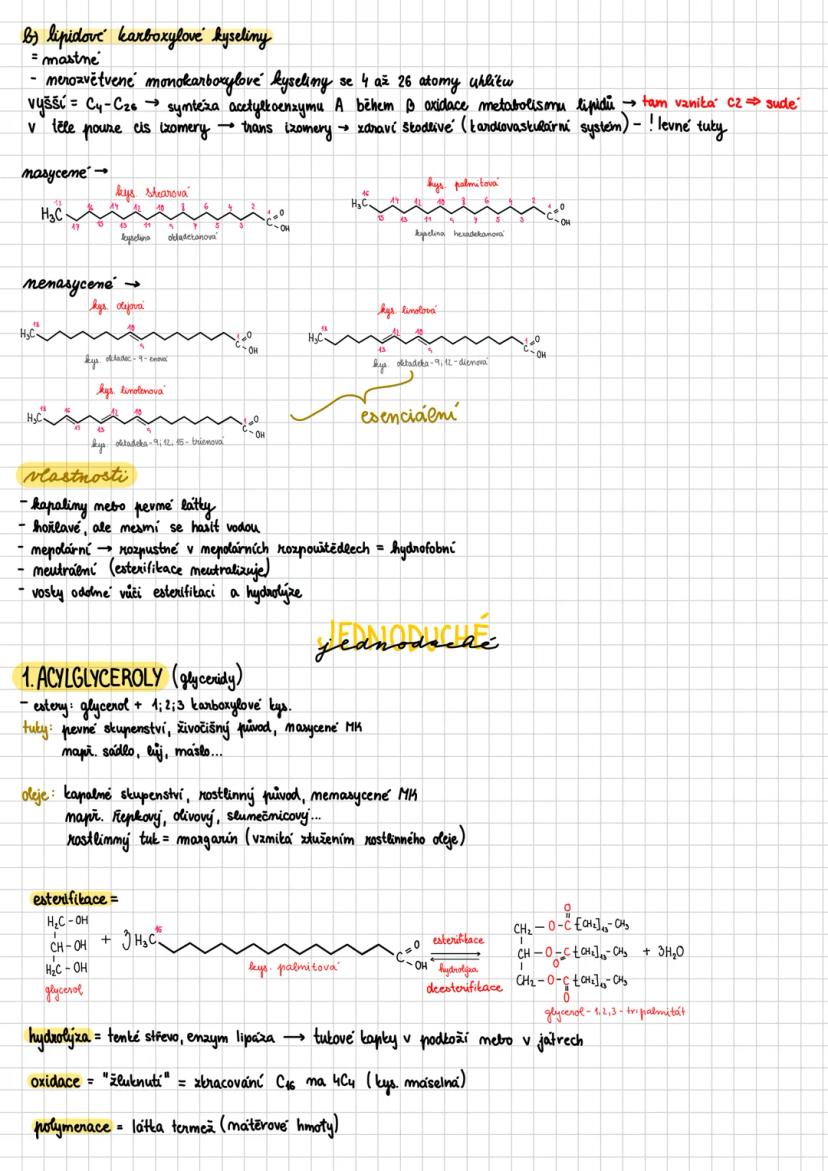 b) lipidové karboxylové kyseliny
= mastné
- nerozvětvené monokarboxylové kyseliny se 4 až 26 atomy uhlíku
vyšší = C4-C26 → syntéza acetylkoenzymu A během β oxidace metabolismu lipidů → tam vzniká C2 ⇒ sudé
v těle pouze cis izomery → trans izomery → zdraví škodlivé (kardiovaskulární systém) - ! levné tuky
nasycené →
kys. stearová
kys. palmitová
H3C 17 16 15 14 13 12 11 10 9 8 7 6 5 4 3 2 C O OH
16 H3C 15 14 13 12 11 10 9 8 7 6 5 4 3 2 1 C O OH
kyselina oktadekanová
kyselina hexadekanová
nenasycené →
kys. olejová
kys. linolová
18 H3C 10 9 1 C O OH
18 H3C 13 12 10 9 1 C O OH
kys. oktadec-9-enová
kys. oktadeka-9,12-dienová
kys. linolenová
18 H3C 16 15 13 12 10 9 1 C O OH
esenciální
kys. oktadeka-9,12,15-trienová
vlastnosti
- kapaliny nebo pevné látky
- hořlavé, ale nesmí se hasit vodou
- nepolární → rozpustné v nepolárních rozpouštědlech = hydrofobní
- neutrální (esterifikace neutralizuje)
- vosky odolné vůči esterifikaci a hydrolýze
JEDNODUCHÉ
jednoduché
1. ACYLGLYCEROLY (glyceridy)
- estery: glycerol + 1;2;3 karboxylové kys.
tuky: pevné skupenství, živočišný původ, nasycené MK
např. sádlo, lůj, máslo...
oleje: kapalné skupenství, rostlinný původ, nenasycené MK
např. řepkový, olivový, slunečnicový...
rostlinný tuk = margarín (vzniká ztužením rostlinného oleje)
esterifikace =
H2C-OH
CH-OH + 3 H3C 16 C O OH
H2C-OH
glycerol
kys. palmitová
esterifikace
hydrolýza
deesterifikace
CH2-O-C O [CH2]13-CH3
CH-O-C O [CH2]13-CH3 + 3H2O
CH2-O-C O [CH2]13-CH3
glycerol-1,2,3-tripalmitát
hydrolýza = tenké střevo, enzym lipáza → tukové kapky v podkoží nebo v játrech
oxidace = "žluknutí" = zkracování C16 na 4C4 (kys. máselná)
polymerace = látka fermež (nátěrové hmoty)